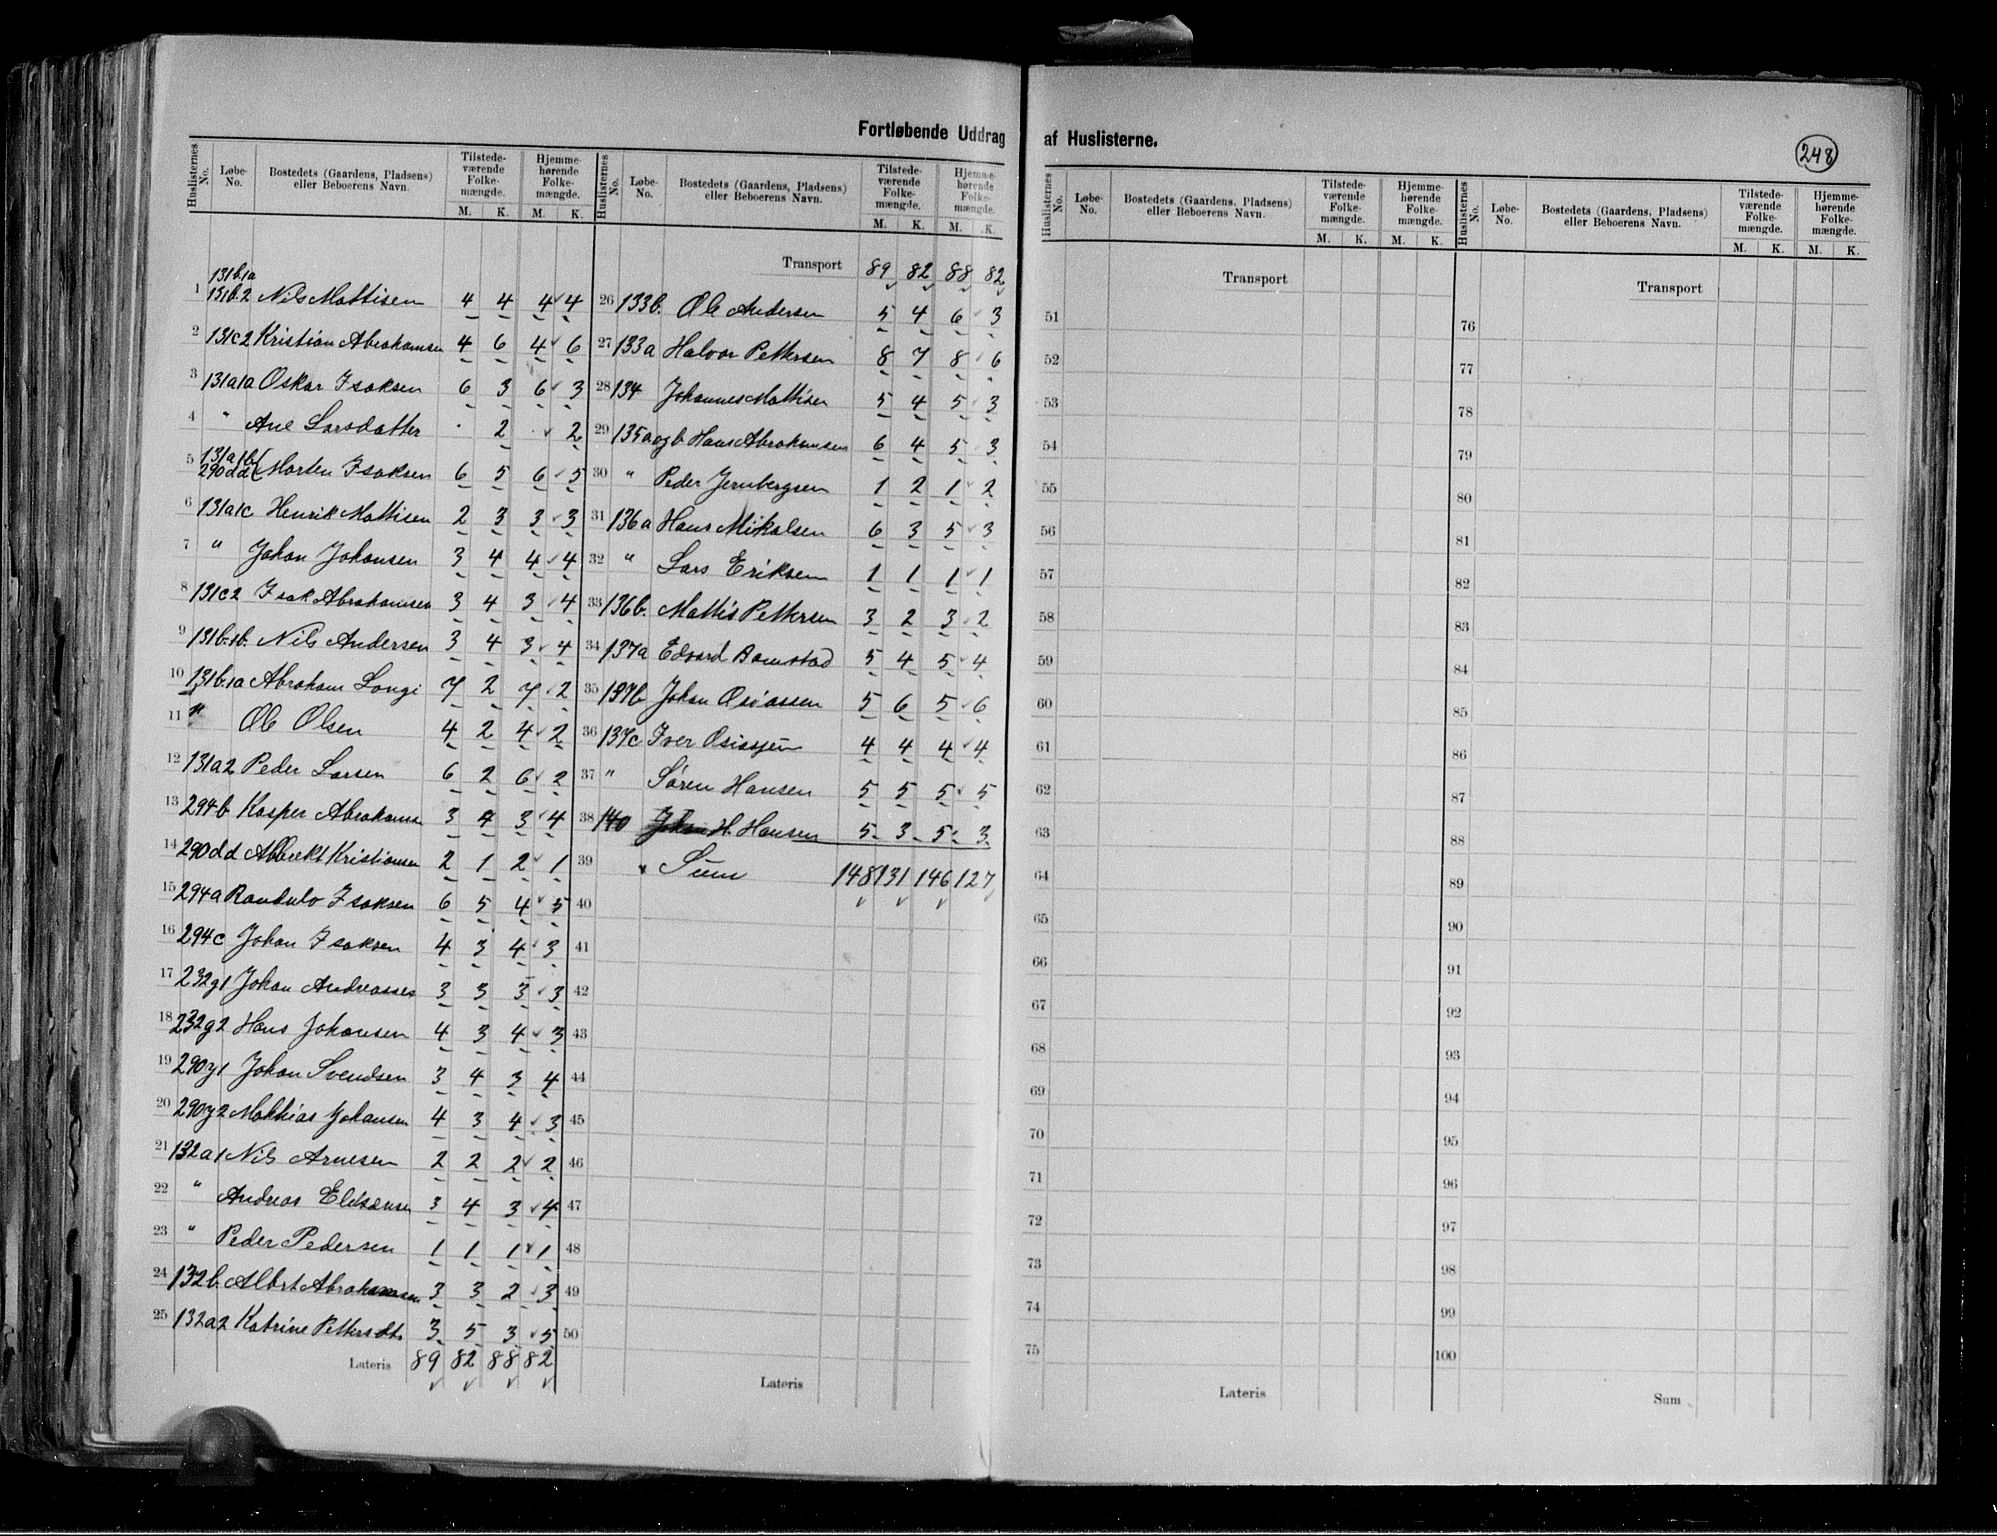 Fortløbende Uddrag af Huslisterne.
248
Huslisternes No. Løbe-No. Bostedets (Gaardens, Pladsens) eller Beboerens Navn. Tilstede-værende Folke-mængde. M. K. Hjemme-hørende Folke-mængde. M. K.
131b.1a
1 131b.2 Nils Mattisen 4 4 4 4
2 131c2 Kristian Abrahamsen 4 6 4 6
3 131a1a Oskar Isaksen 6 3 6 3
4 " Ane Larsdatter . 2 . 2
131a1b
5 290dd Morten Isaksen 6 5 6 5
6 131a1c Henrik Mattisen 2 3 3 3
7 " Johan Johansen 3 4 4 4
8 131c2 Isak Abrahamsen 3 4 3 4
9 131b.1b. Nils Andersen 3 4 3 4
10 131b.1a Abraham Longi 7 2 7 2
11 " Ole Olsen 4 2 4 2
12 131a2 Peder Larsen 6 2 6 2
13 294b Kasper Abrahamsen 3 4 3 4
14 290dd Albrekt Kristiansen 2 1 2 1
15 294a Randulv Isaksen 6 5 4 5
16 294c Johan Isaksen 4 3 4 3
17 232g1 Johan Andreassen 3 3 3 3
18 232g2 Hans Johansen 4 3 4 3
19 290y1 Johan Svendsen 3 4 3 4
20 290y2 Mathias Johansen 4 3 4 3
21 132a1 Nils Arnesen 2 2 2 2
22 " Andreas Eliesersen 3 4 3 4
23 " Peder Pedersen 1 1 1 1
24 132b. Albert Abrahamsen 3 3 2 3
25 132a2 Katrine Pettersdt. 3 5 3 5
Lateris 89 82 88 82
Huslisternes No. Løbe-No. Bostedets (Gaardens, Pladsens) eller Beboerens Navn. Tilstede-værende Folke-mængde. M. K. Hjemme-hørende Folke-mængde. M. K.
Transport 89 82 88 82
26 133b. Ole Andersen 5 4 6 3
27 133a Halvor Pettersen 8 7 8 6
28 134 Johannes Mattisen 5 4 5 3
29 135a og b Hans Abrahamsen 6 4 5 3
30 " Peder Jernbergsen 1 2 1 2
31 136a Hans Mikalsen 6 3 5 3
32 " Lars Eriksen 1 1 1 1
33 136b. Mattis Pettersen 3 2 3 2
34 137a Edvard Bomstad 5 4 5 4
35 137b Johan Osiassen 5 6 5 6
36 137c Iver 4 4 4 4
37 " Søren Hansen 5 5 5 5
38 140 Johan H. Hansen 5 3 5 3
39 Sum 148 131 146 127
40
41
42
43
44
45
46
47
48
49
50
Lateris
Huslisternes No. Løbe-No. Bostedets (Gaardens, Pladsens) eller Beboerens Navn. Tilstede-værende Folke-mængde. M. K. Hjemme-hørende Folke-mængde. M. K.
Transport
51
52
53
54
55
56
57
58
59
60
61
62
63
64
65
66
67
68
69
70
71
72
73
74
75
Lateris
Huslisternes No. Løbe-No. Bostedets (Gaardens, Pladsens) eller Beboerens Navn. Tilstede-værende Folke-mængde. M. K. Hjemme-hørende Folke-mængde. M. K.
Transport
76
77
78
79
80
81
82
83
84
85
86
87
88
89
90
91
92
93
94
95
96
97
98
99
100
Sum